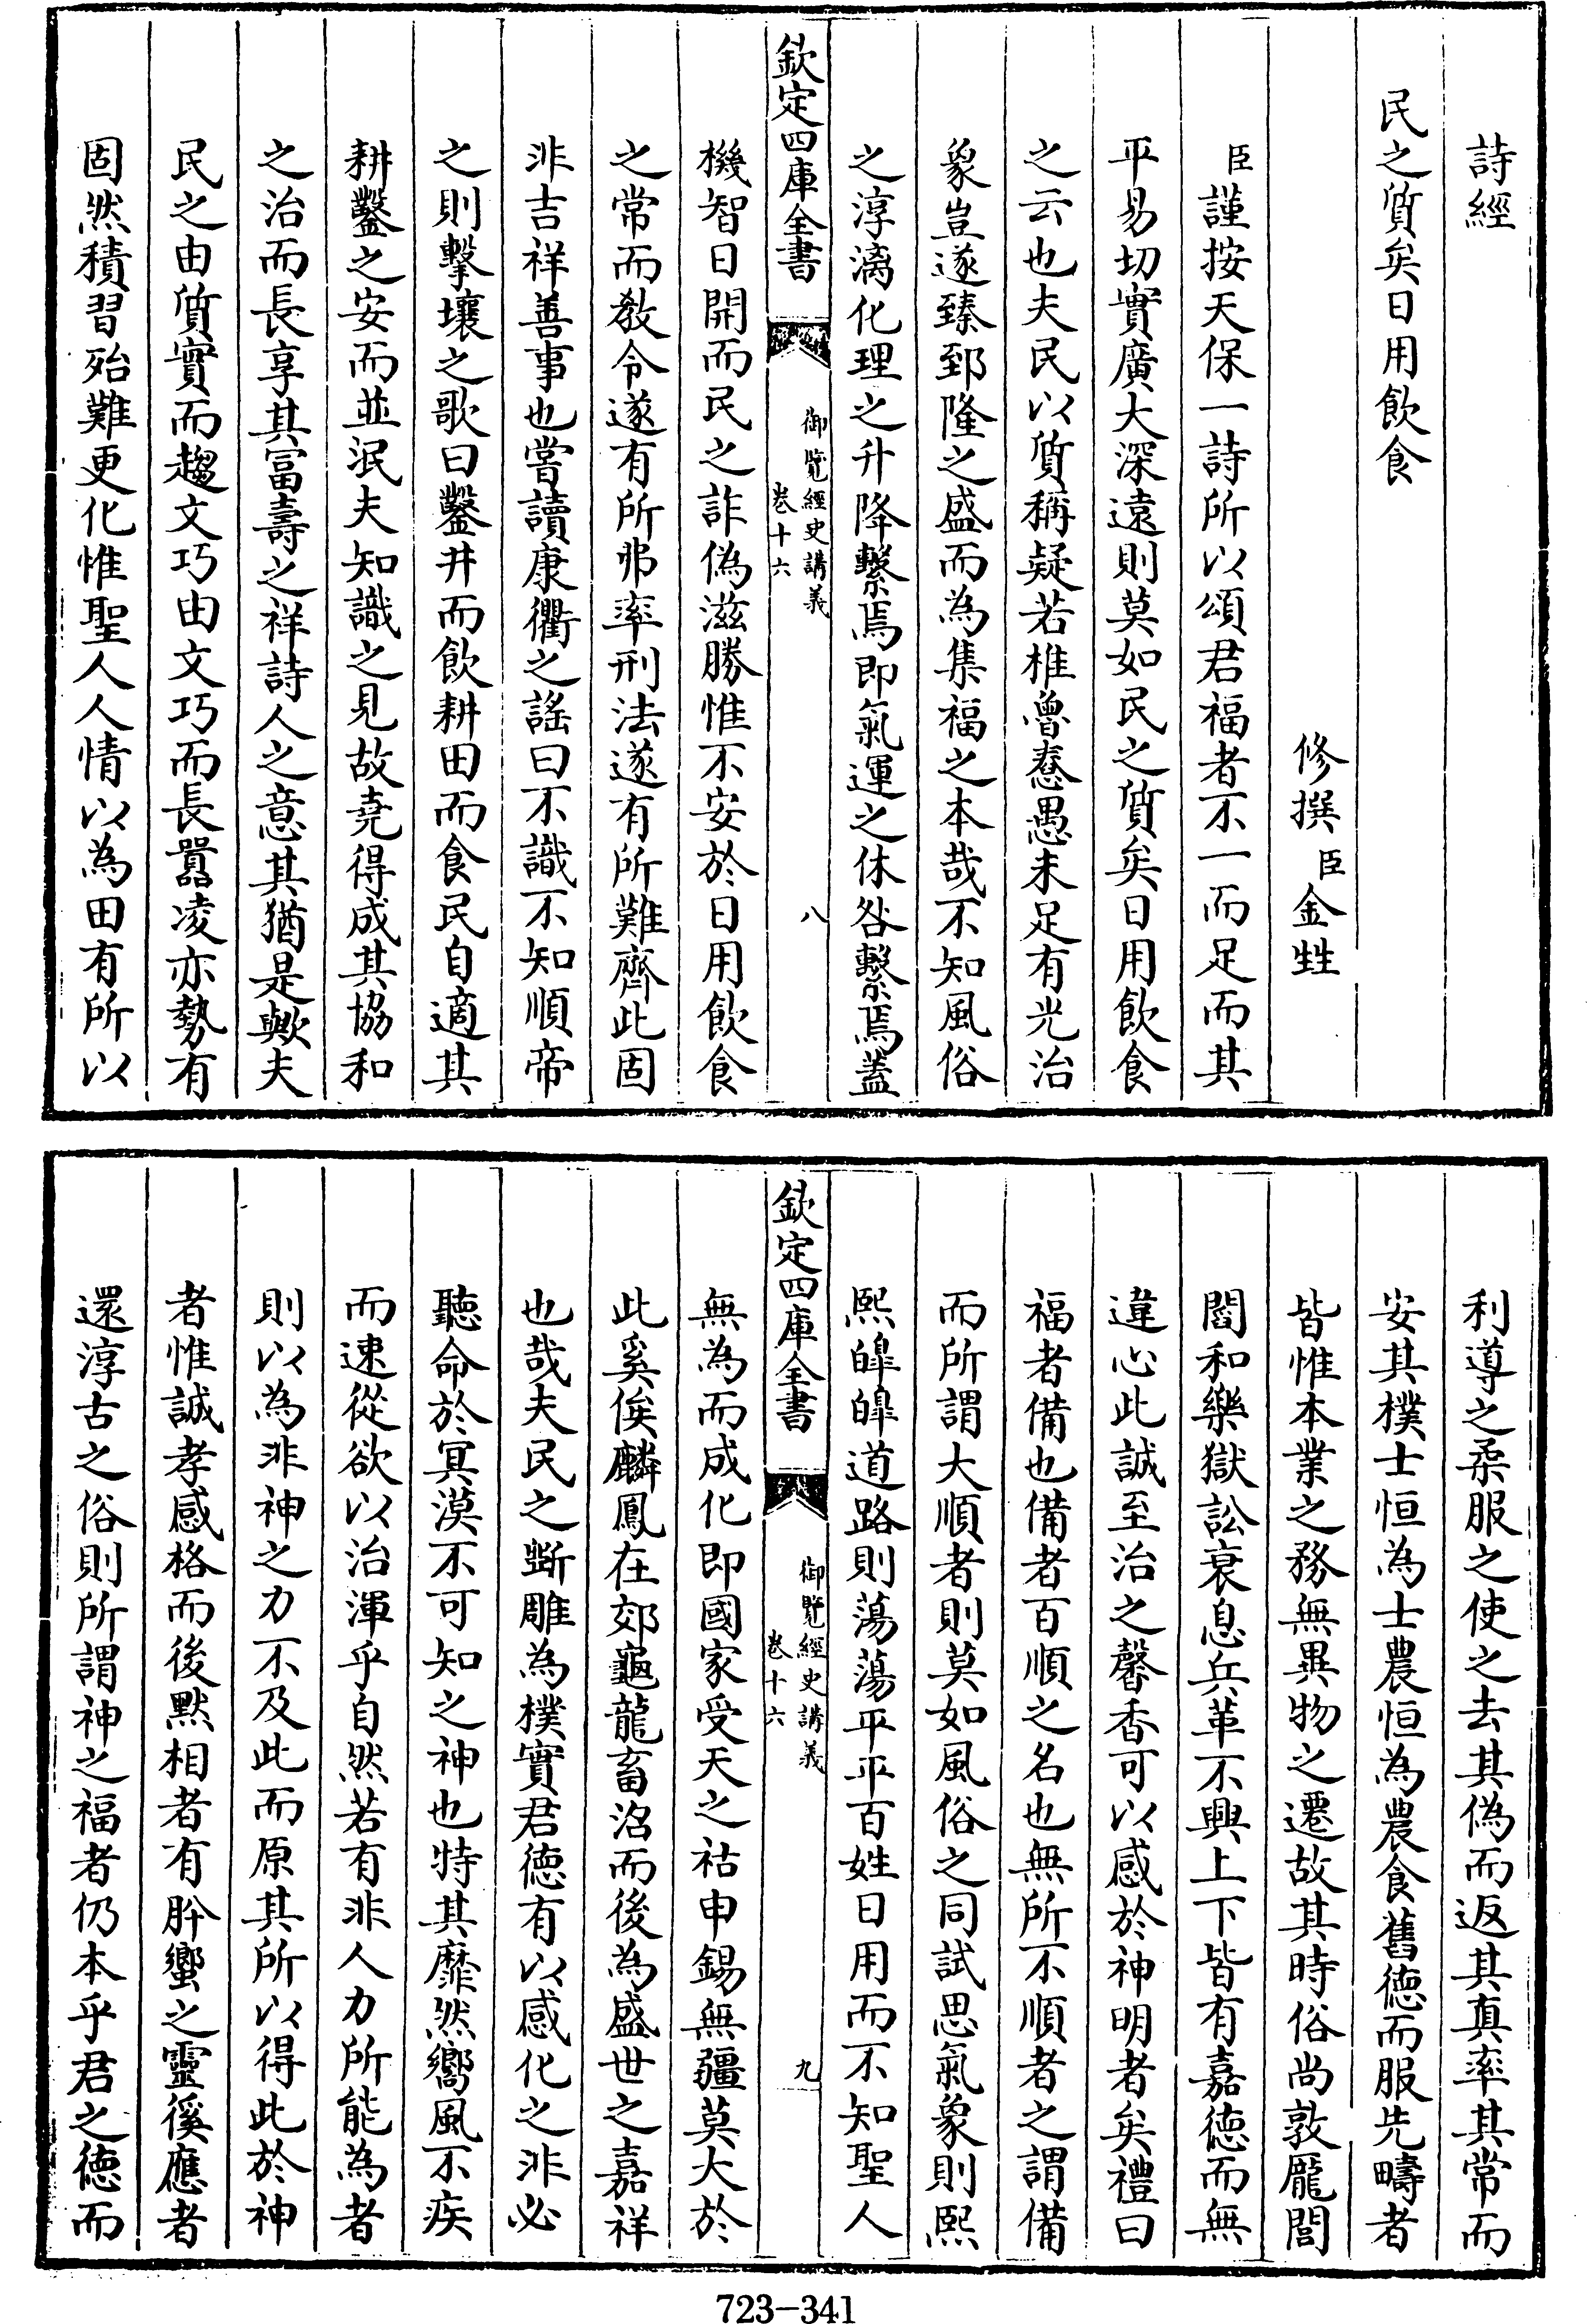 詩經
民之質矣日用飲食
修撰臣金甡
臣謹按天保一詩所以頌君福者不一而足而其
平易切實廣大深遠則莫如民之質矣日用飲食
之云也夫民以質稱疑若椎魯憃愚未足有光治
象豈遂臻郅隆之盛而為集福之本哉不知風俗
之淳漓化理之升降繫焉即氣運之休咎繫焉蓋
欽定四庫全書
御覽經史講義
卷十六
八
機智日開而民之詐偽滋勝惟不安於日用飲食
之常而教令遂有所弗率刑法遂有所難齊此固
非吉祥善事也嘗讀康衢之謠曰不識不知順帝
之則擊壤之歌曰鑿井而飲耕田而食民自適其
耕鑿之安而並泯夫知識之見故堯得成其協和
之治而長享其富壽之祥詩人之意其猶是歟夫
民之由質實而趨文巧由文巧而長囂凌亦勢有
固然積習殆難更化惟聖人人情以為田有所以
利導之柔服之使之去其偽而返其真率其常而
安其樸士恒為士農恒為農食舊德而服先疇者
皆惟本業之務無異物之遷故其時俗尚敦龎閭
閻和樂獄訟衰息兵革不興上下皆有嘉德而無
違心此誠至治之馨香可以感於神明者矣禮曰
福者備也備者百順之名也無所不順者之謂備
而所謂大順者則莫如風俗之同試思氣象則熙
熙皥皥道路則蕩蕩平平百姓日用而不知聖人
欽定四庫全書
御覽經史講義
卷十六
九
無為而成化即國家受天之祜申錫無疆莫大於
此奚俟麟鳳在郊龜龍畜沼而後為盛世之嘉祥
也哉夫民之斲雕為樸實君德有以感化之非必
聽命於冥漠不可知之神也特其靡然嚮風不疾
而速從欲以治渾乎自然若有非人力所能為者
則以為非神之力不及此而原其所以得此於神
者惟誠孝感格而後默相者有肸蠁之靈徯應者
還淳古之俗則所謂神之福者仍本乎君之德而
723-341